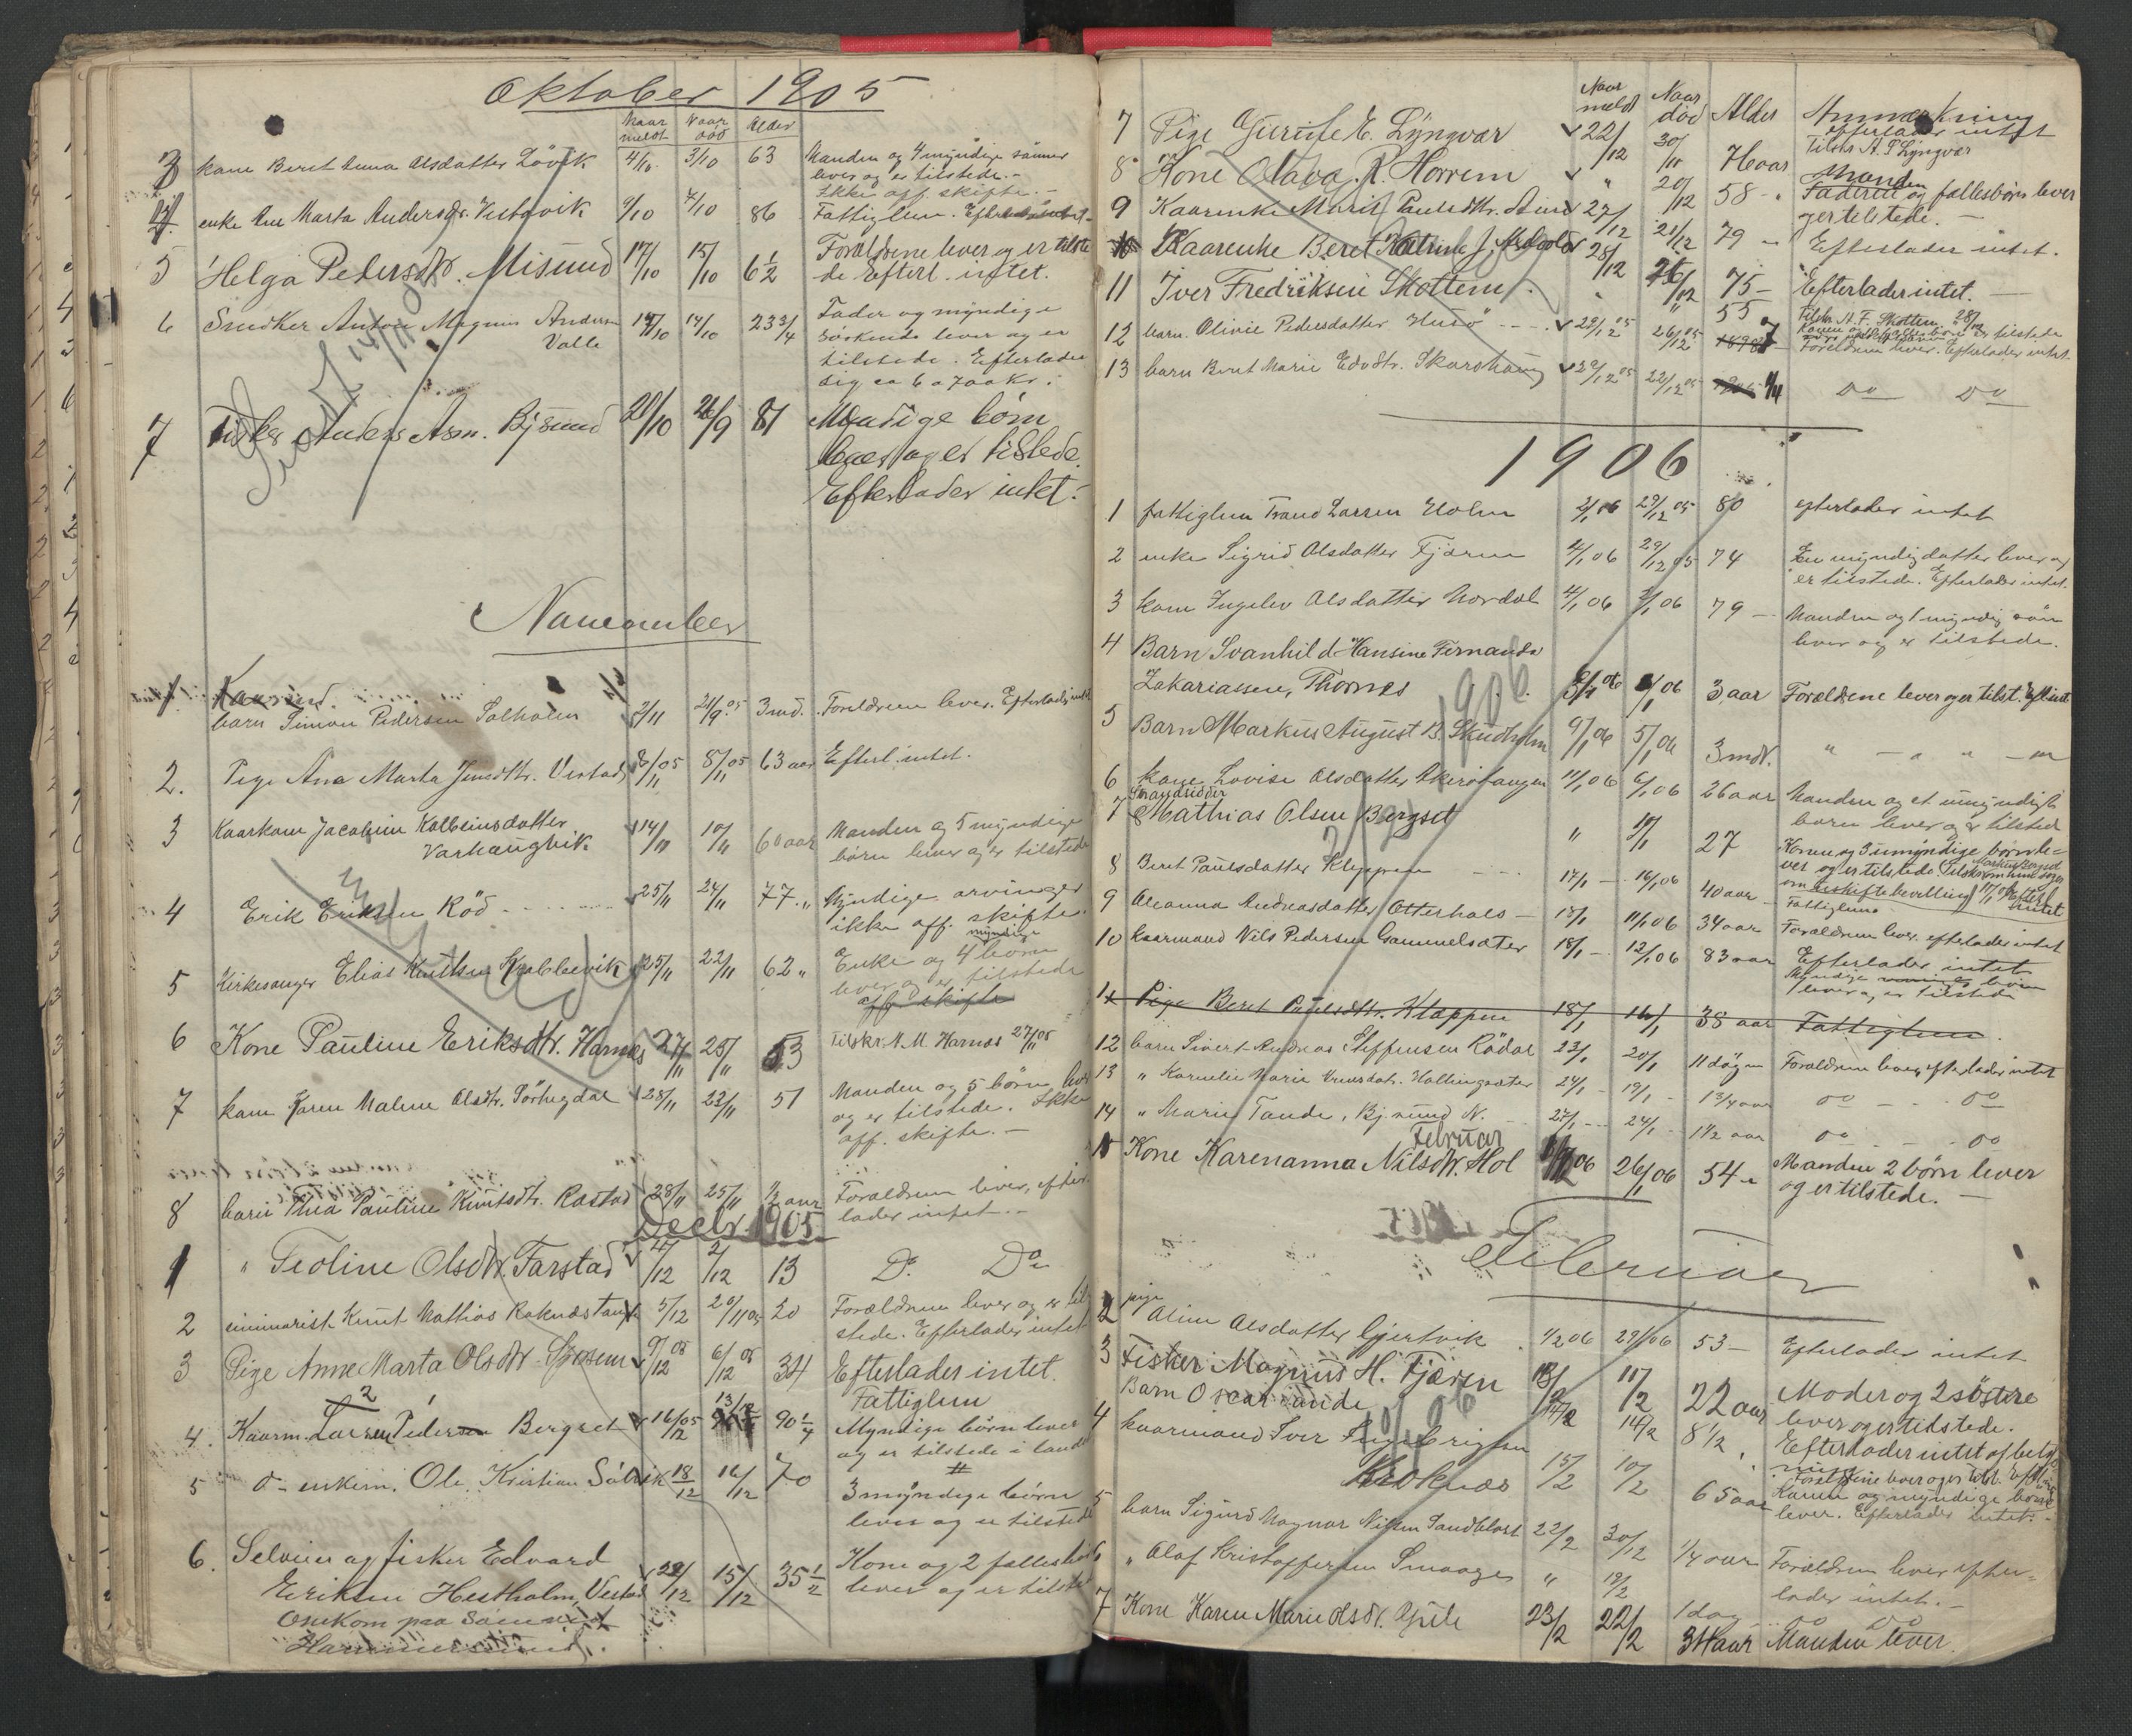 Oktober 1905
Naar meldt Naar död Alder
3 kone Beret Anna Olsdatter Lövik 4/10 3/10 63 Manden og 4 myndige sönner
lever og er tilstede.-
Ikke off. skifte.-
4 enke Ane Marta Andersdr. Vestavik 9/10 7/10 86 Fattiglem.
5 Helga Pedersdtr. Misund 17/10 15/10 6 1/2 Forældrene lever og er tilste
de. Efterl. intet.
6 Snedker Anton Magnus Andersen 19/10 14/10 23 3/4 Fader og myndige
Valle söskende lever og er
tilstede. Efterlader
sig ca 6 a 700 kr.
7 Fisker Anders Asm. Bjsund 28/10 26/9 81 Myndige börn
lever og er tilstede.
Efterlader intet.
November
1 Kaarmd.
barn Simon Pedersen Solholm 2/11 21/9 05 3 md. Foreldrene lever. Efterlader intet
2. Pige Ana Marta Jensdtr. Vestad 8/11 05 8/11 05 63 aar Efterl. intet.
3 Kaarkone Jacobine Kolbeinsdatter 14/11 10/11 60 aar Manden og 5 myndige
Varhaugvik börn lever og er tilstede
4 Erik Eriksen Röd 25/11 24/11 77 " Myndige arvinger
ikke off. skifte.
myndige
5 Kirkesanger Elias Knutsen Krabbevik 25/11 22/11 62 " Enke og 4 börn
lever og er tilstede
off. skifte
6 Kone Pauline Eriksdtr. Harnes 27/11 25/11 53 Tilskr. N. M. Harnæs 27/11 05
7 kone Karen Malene Olsdtr. Sörhegdal 28/11 23/11 51 Manden og 5 börn lever
og er tilstede. Ikke
off. skifte.-
8 barn Anna Pauline Knutsdtr. Rastad 28/11 25/11 1/2 aar Forældrene lever, efter-
lader intet.-
Decbr. 1905
1 " Teoline Olsdtr. Farstad 4/12 2/12 13 Do Do
2 seminarist Knut Mathias Raknæstangen 5/12 20/11 05 20 Forældrene lever og er til
stede. Efterlader intet
3 Pige Anne Marta Olsdtr. 9/12 05 6/12 05 34 Efterlader intet.
Fattiglem
4. Kaarm. Lars Pedersen Bergset 16/12 05 13/12 90 1/4 Myndige börn lever
og er tilstede i landet
5 do enkem. Ole Kristian Solvik 18/12 16/12 70 3 myndige börn
lever og er tilstede
6. Selveier og fisker Edvard
Eriksen Hestholm, Vestad 22/12 15/12 35 1/2 Kone og 2 fællesbörn
lever og er tilstede
Omkom paa Sömmen
Naar meldt Naar död Alder Anmærkning
7 Pige Gurule E. Lyngvær 22/12 30/11 74 aar efterlader intet
Tilskr. A. P. Lyngvær
8 Kone Olava R. Horrem " 20/12 58 - " Manden
Faderen og fællesbörn lever
og er tilstede.-
9 Kaarenke Marit Paulsdtr. 27/12 21/12 79 - Efterlader intet.
10 Kaarenke Beret Katrine J. 28/12 26/12 75 - Efterlader intet.-
11 Iver Fredriksen Skottem " " 55 Tilskr. A. F. Skottem 28/12
12 barn Olivie Pedersdatter Husö 29/12 05 26/12 05 7 Foreldrene lever. Efterlader intet
13 barn Beret Marie Edvdtr. Skarshaug 29/12 05 22/12 05 1/4 Do Do
1906
1 fattiglem Trond Larsen Holm 2/1 06 29/12 05 80 efterlader intet
2 enke Sigrid Olsdatter Fjæren 4/1 06 29/12 05 74 En myndig datter lever og
er tilstede. Efterlader intet.
3 kone Ingelev Olsdatter Nordal 4/1 06 1/1 06 79 - Manden og 1 myndig sön
lever og er tilstede.
4 Barn Svanhild Hansine Fernanda
Zakariassen, Thornes 8/1 06 6/1 06 3 aar Forældrene lever og er tilst. Eft. intet
5 Barn Markus August B. Skudholm 9/1 06 5/1 06 3 mdr. " - " - "
6 kone Lovise Olsdatter Akeröhaugen 11/1 06 6/1 06 26 aar Manden og et umyndigt
barn lever og er tilstede
7 Strandsidder
Mathias Olsen Bergset " 11/1 27 Konen og 3 umyndige börn le-
ver og er tilstede.
om uskiftebevilling
8 Beret Paulsdatter Kleppen 17/1 - 16/1 06 40 aar - Fattiglem
9 Oleanna Andreasdatter Otterhals - 18/1 11/1 06 34 aar Foreldrene lever. efterlader intet
10 kaarmand Nils Pedersen Gammelsæter 18/1 - 12/1 06 83 aar Efterlader intet
Myndige börn
lever og er tilstede
11 Pige Beret Paulsdtr. Klappen 18/1 16/1 38 aar Fattiglem
12 barn Sivert Andreas Steffensen Rödal 23/1 20/1 11 dögn Forældrene lever, efterlader intet
13 " Kornelie Marie Hallingsæter 24/1 - 19/1 - 1 3/4 aar do - do
14 " Marie Tande, Bjsund N. 27/1 - 24/1 - 1 1/2 aar do - do
Februar
1 Kone Karenanna Nilsdtr. Hol 1/2 06 26/1 06 54 - Manden 2 börn lever
og er tilstede.-
Februar
2 pige Oline Olsdatter Gjertvik 1/2 06 29/1 06 53 - Efterlader intet
3 Fisker Magnus H. Fjæren 13/2 11/2 22 aar Moder og 2 söstre
lever og er tilstede.
Efterlader intet af betyd
ning
Barn Oscar Tande 14/2 14/2 8 1/2 Forældrene lever og er tilst.
4 kaarmand Iver Ingebrigtsen
Kroknæs 15/2 10/2 65 aar Konen og myndige börn
lever. Efterlader intet.-
5 barn Sigurd Magnar Nilsen Sandblost 22/2 30/12 1/4 aar Forældrene lever efter-
lader intet.-
6 " Olaf Kristoffersen Smaage " 19/2 1 dag do do
7 Kone Karen Marie Olsdr. Gule 23/2 22/2 34 aar Manden lever.